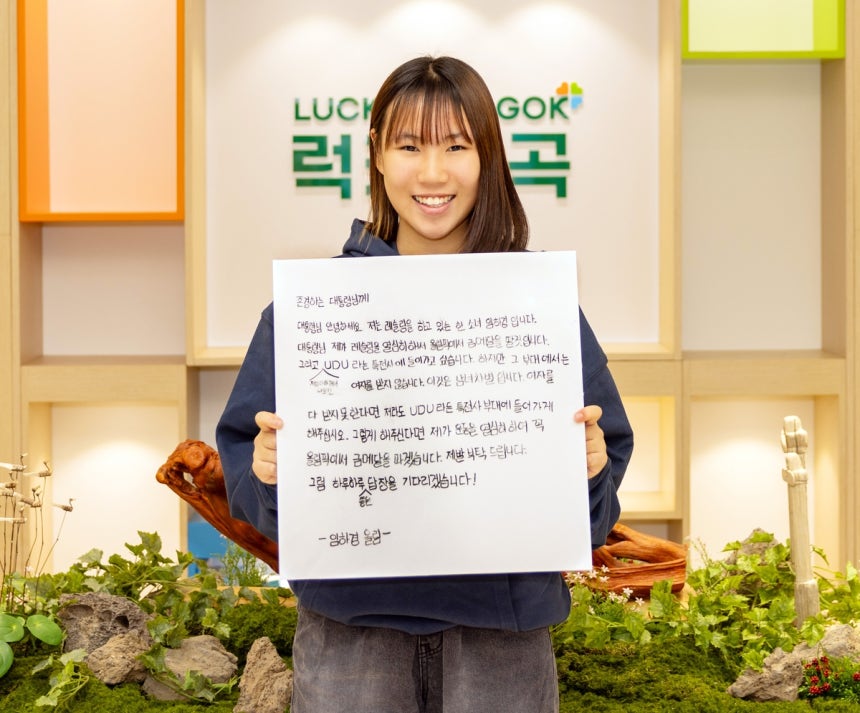 LUCK GOK
럭 곡
존경하는 대통령님께!
대통령님 안녕하세요. 저는 레슬링을 하고 있는 한 소녀 임하경 입니다.
대통령님 제가 레슬링을 열심히 해서 올림픽에서 금메달을 딸것입니다.
그리고 UDU 라는 특전사에 들어가고 싶습니다. 하지만 그 부대에서는
여자를 받지 않습니다. 이것은 남녀차별 입니다. 여자를
다 받지 못한다면 저라도 UDU 라는 특전사 부대에 들어가게
해주십시오. 그렇게 해주신다면 제가 운동을 열심히 하여 꼭
올림픽에서 금메달을 따겠습니다. 제발 부탁 드립니다.
그럼 하루하루 답장을 기다리겠습니다!
좋은
- 임하경 올림 -